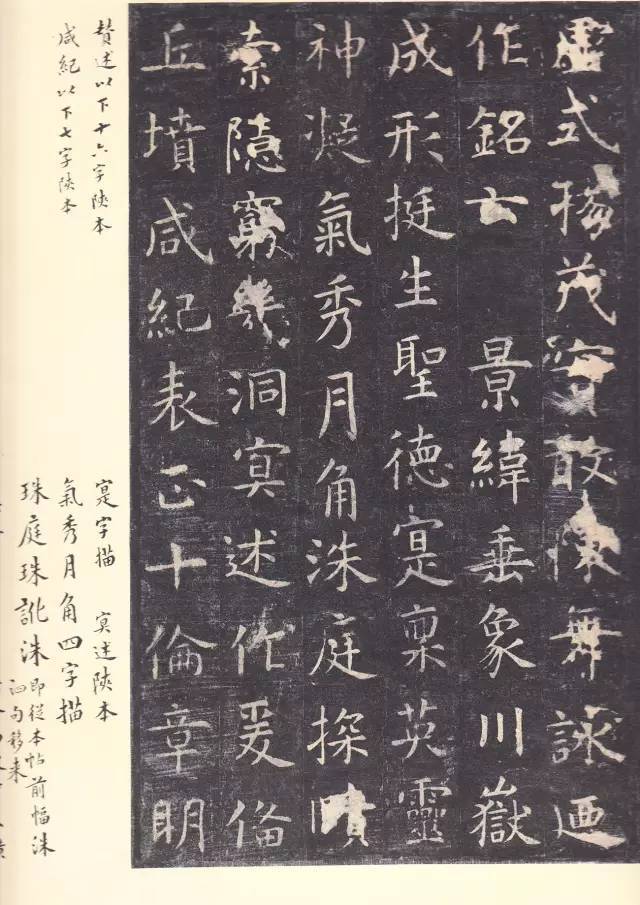 虛式揚茂實敢陳舞詠迺
作銘云 景緯垂象川嶽
成形挺生聖德寔稟英靈
神凝氣秀月角洙庭探賾
索隱窮幾洞冥述作爰俻
丘墳咸紀表正十倫章明
賛述以下十六字陝本
咸紀以下七字陝本
寔字描 冥述陝本
氣秀月角四字描
珠庭珠訛洙即從本帖前幅洙
泗句移来